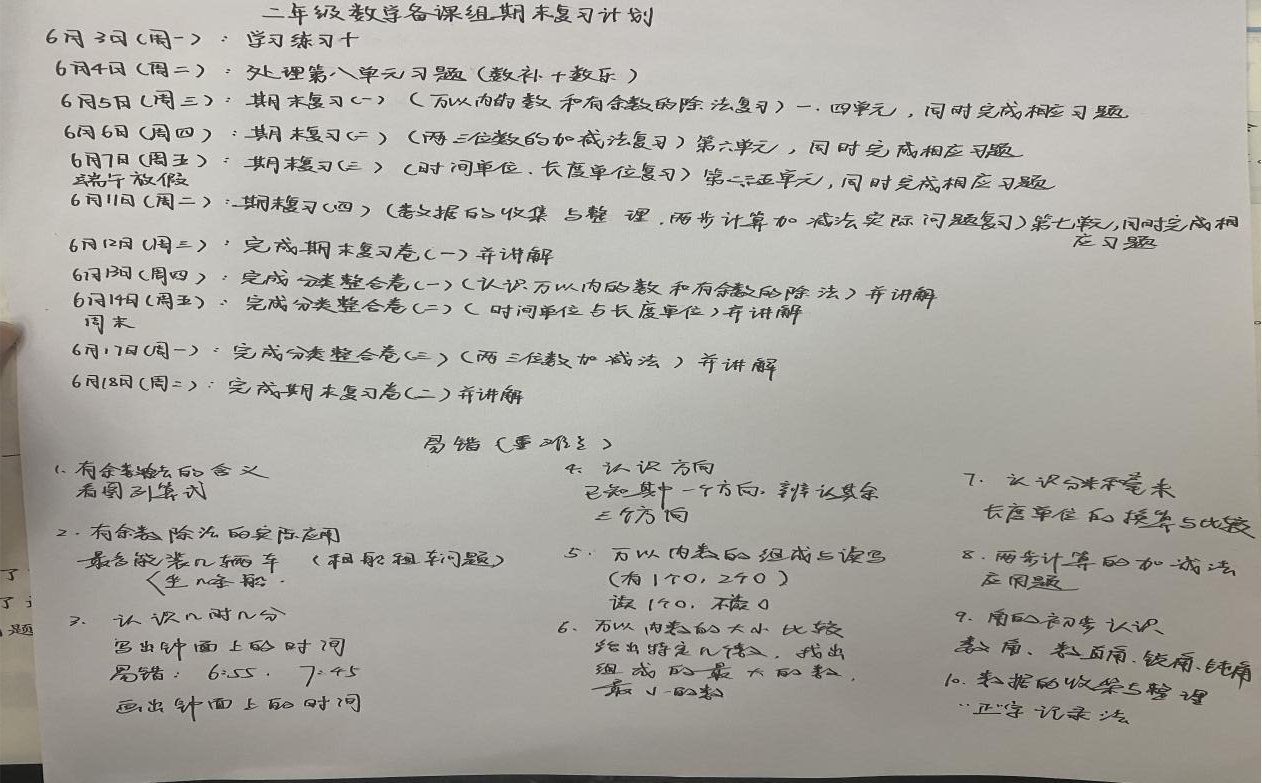 二年级数学备课组期末复习计划
6月3日(周一)：学习练习十
6月4日(周二)：处理第八单元习题(数补+数乐)
6月5日(周三)：期末复习(一)(万以内的数和有余数的除法复习)一.四单元，同时完成相应习题
6月6日(周四)：期末复习(二)(两三位数的加减法复习)第六单元，同时完成相应习题
6月7日(周五)：期末复习(三)(时间单位、长度单位复习)第二三五单元，同时完成相应习题
端午放假
6月11日(周二)：期末复习(四)(数据的收集与整理.两步计算加减法实际问题复习)第七单元,同时完成相
应习题
6月12日(周三)：完成期末复习卷(一)并讲解
6月13日(周四)：完成分类整合卷(一)(认识万以内的数和有余数的除法)并讲解
6月14日(周五)：完成分类整合卷(二)(时间单位与长度单位)并讲解
周末
6月17日(周一)：完成分类整合卷(三)(两三位数加减法)并讲解
6月18日(周二)：完成期末复习卷(二)并讲解
易错(重难点)
1.有余数除法的含义
看图列算式
2.有余数除法的实际应用
最多能装几辆车(租船租车问题)
坐几条船.
3.认识几时几分
写出钟面上的时间
易错：6:55. 7:45
画出钟面上的时间
4.认识方向
已知其中一个方向.辨认其余
三个方向
5.万以内数的组成与读写
(有1个0,2个0)
读1个0.不读0
6.万以内数的大小比较
给出特定几个数.找出
组成的最大的数.
最小的数
7.认识分米和毫米
长度单位的换算与比较
8.两步计算的加减法
应用题
9.角的初步认识
数角、数直角、锐角、钝角
10.数据的收集与整理
"正"字记录法